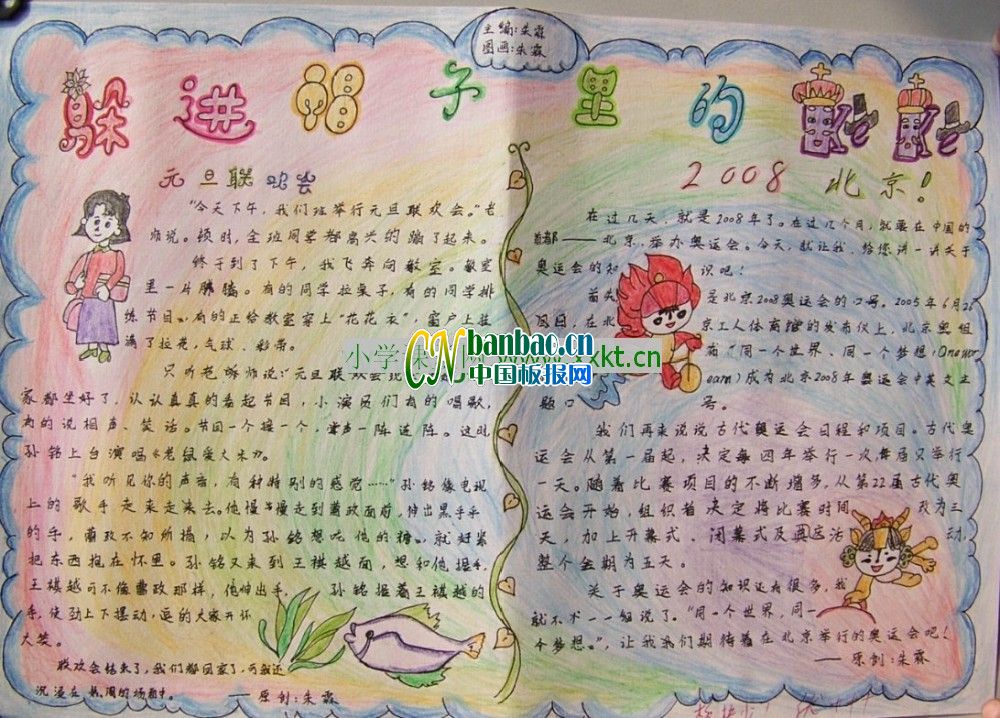 主编:朱霖
图画:朱霖
躲进帽子里的
元旦联欢会
“今天下午，我们班举行元旦联欢会。”老
师说。顿时，全班同学都高兴的蹦了起来。
终于到了下午，我飞奔向教室。教室
里一片沸腾。有的同学拉桌子，有的同学排
练节目，有的正给教室穿上“花花衣”，窗户上挂
满了拉花，气球、彩带。
只听老师说:“元旦联欢会
家都坐好了，认认真真的看起节目，小演员们有的唱歌，
有的说相声、笑话。节目一个接一个，掌声一阵连阵。这时
孙铭上台演唱《老鼠爱大米》。
“我听见你的声音，有种特别的感觉……”孙铭像电视
上的歌手走来走去。他慢慢走到曹政面前，伸出黑乎乎
的手，曹政不知所措，以为孙铭想吃他的糖，就赶紧
把东西抱在怀里。孙铭又来到王祺越面，想和他握手，
王祺越可不像曹政那样，他伸出手，孙铭握着王祺越的
手，使劲上下摆动，逗的大家开怀
大笑。
联欢会结束了，我们都回家了，可我还
沉浸在热闹的场面中。
——原创:朱霖
2008 北京!
在过几天，就是2008年了。在过几个月，就要在中国的
首都——北京，举办奥运会。今天，就让我，给您讲一讲关于
奥运会的知识吧!
首先 是北京2008奥运会的口号。2005年6月26
日，在北京工人体育馆的发布仪上，北京奥组
“同一个世界、同一个梦想(One wor
eam)成为北京2008年奥运会中英文主
题口号。
我们再来说说古代奥运会日程和项目。古代奥
运会从第一届起，决定每四年举行一次，每届只举行
一天。随着比赛项目的不断增多，从第22届古代奥
运会开始，组织者决定将比赛时间改为三
天，加上开幕式、闭幕式及奥运活动，
整个会期为五天。
关于奥运会的知识还有很多，我
就不术一一细说了。“同一个世界，同一
个梦想。”，让我我们期待着在北京举行的奥运会吧!
——原创:朱霖
banbao.cn
中国板报网
小学课
www.xxkt.cn